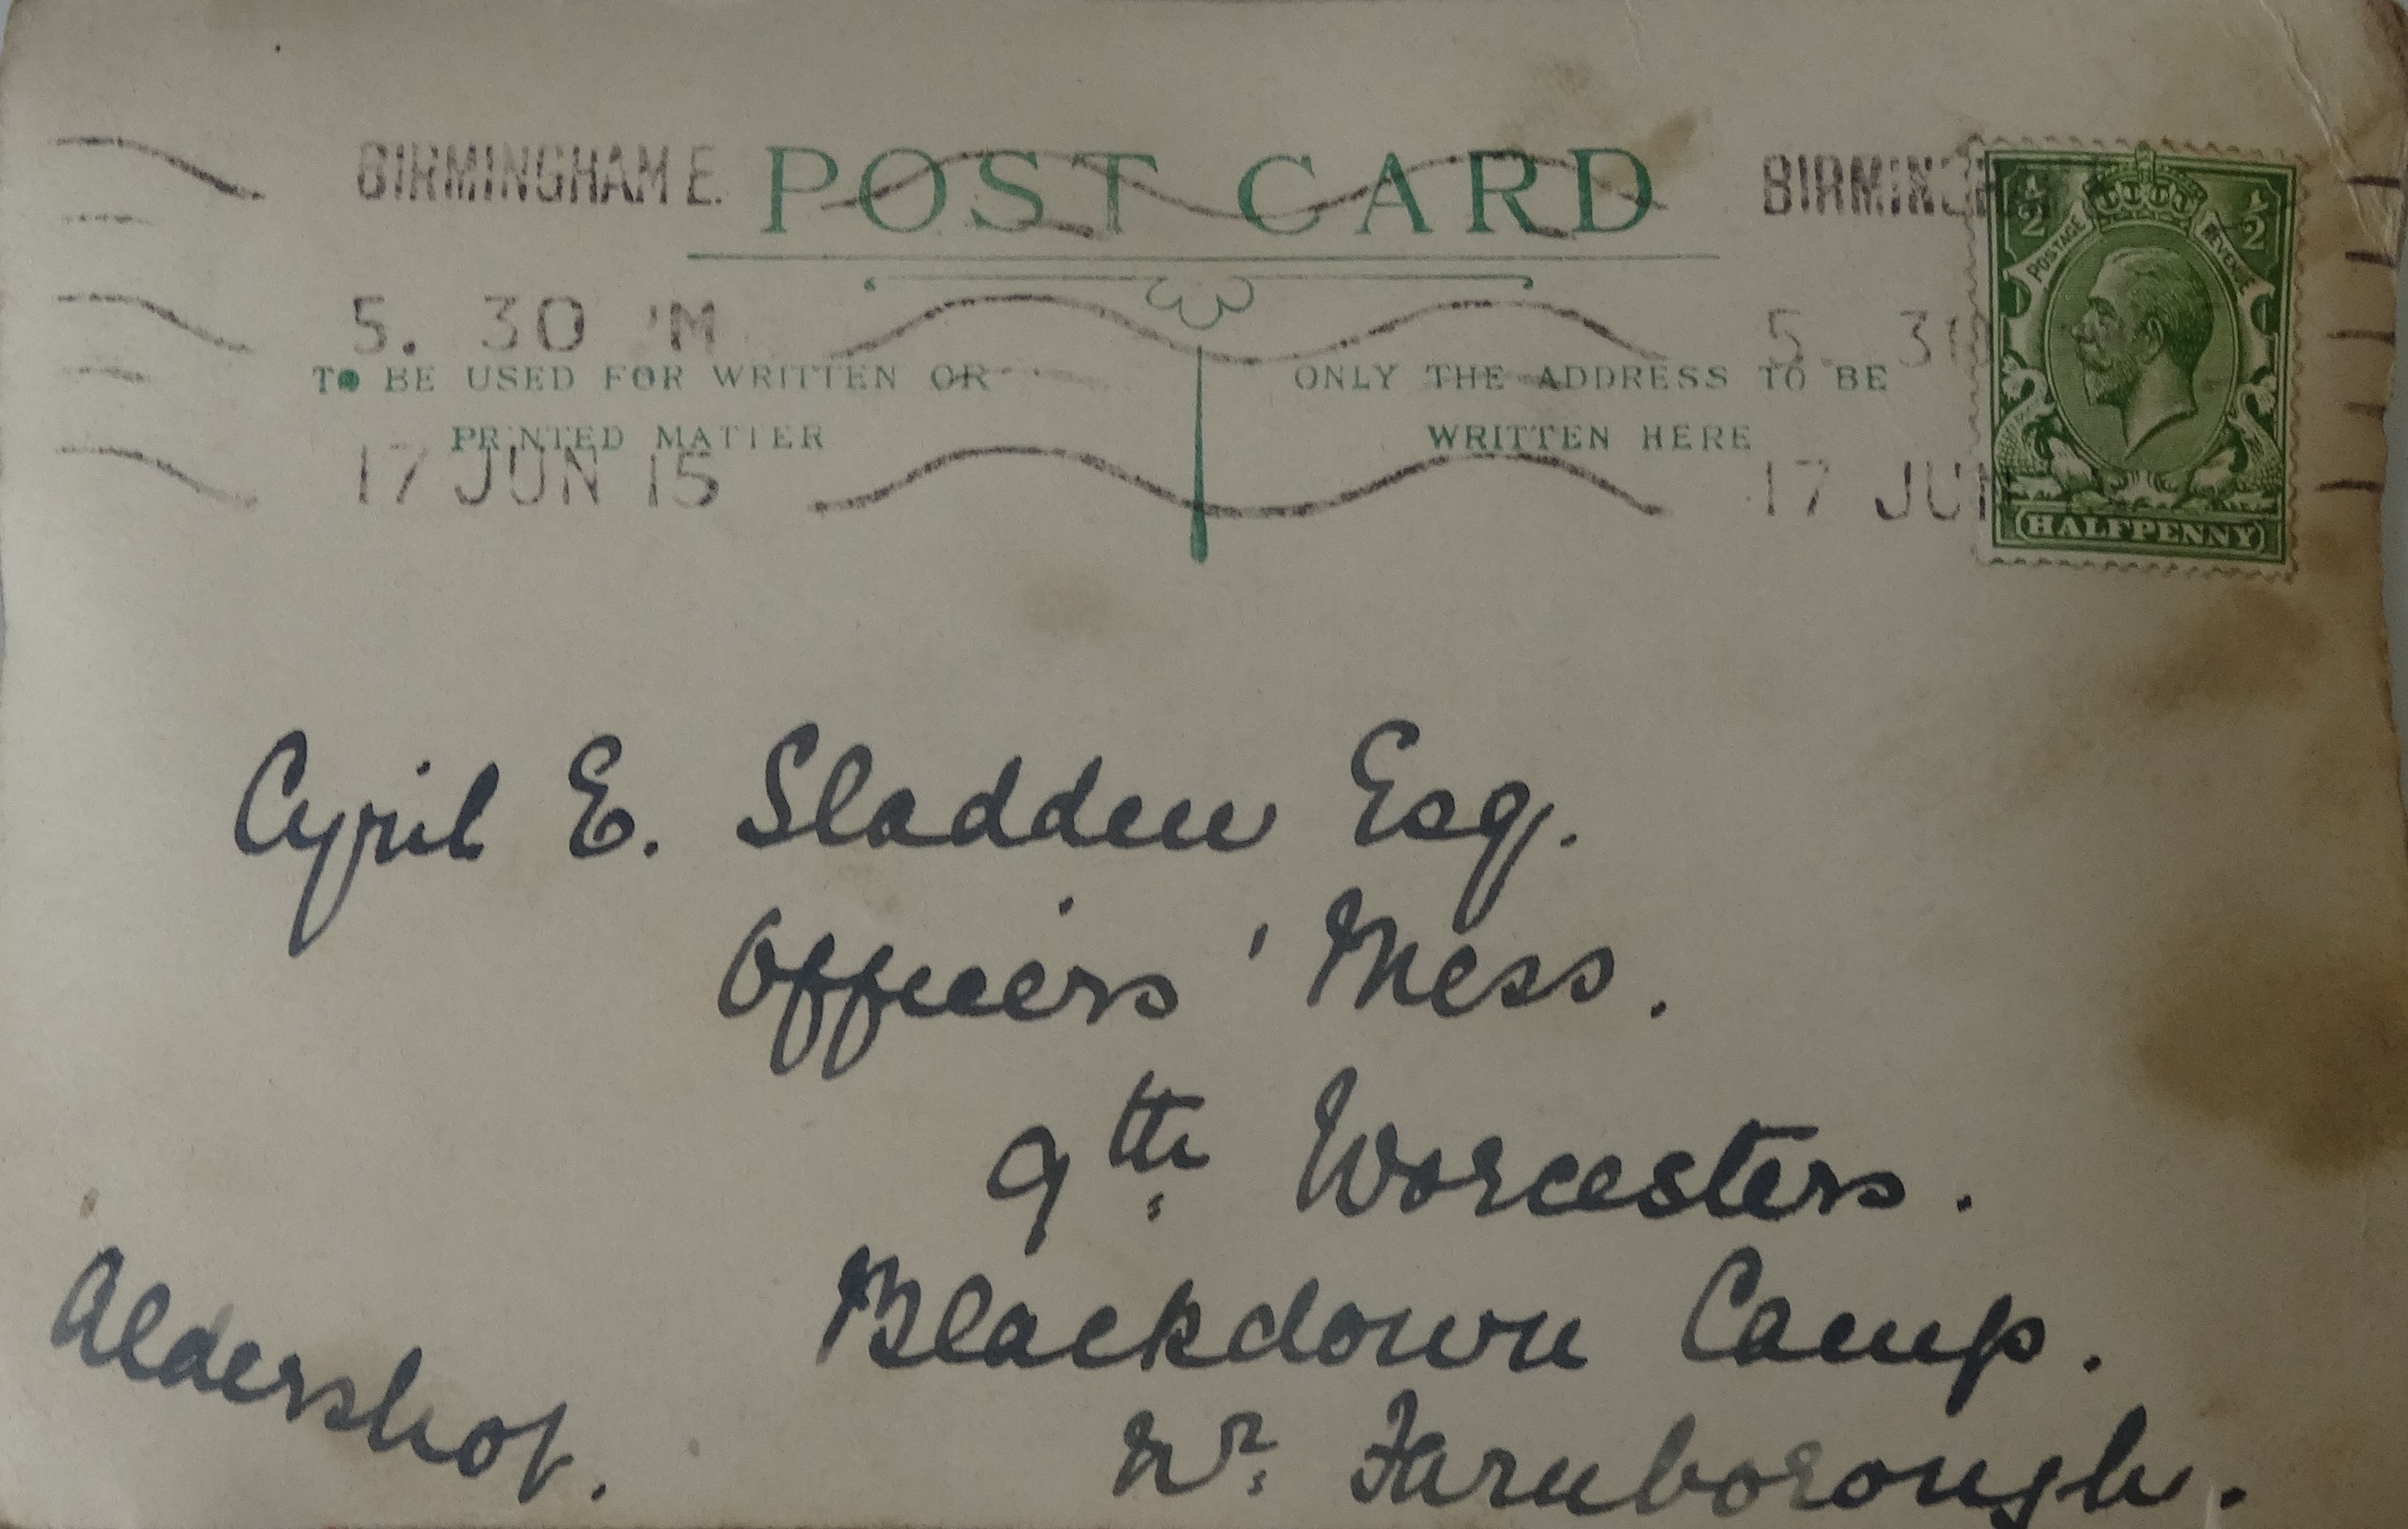 BIRMINGHAM E. POST CARD BIRMINGH
½ POSTAGE REVENUE ½
5. 30 PM 5 30
TO BE USED FOR WRITTEN OR
PRINTED MATTER
ONLY THE ADDRESS TO BE
WRITTEN HERE
17 JUN 15 17 JUN
HALFPENNY
Cyril E. Sladden Esq.
Officers' Mess.
9th Worcesters.
Blackdown Camp.
Nr. Farnborough.
Aldershot.